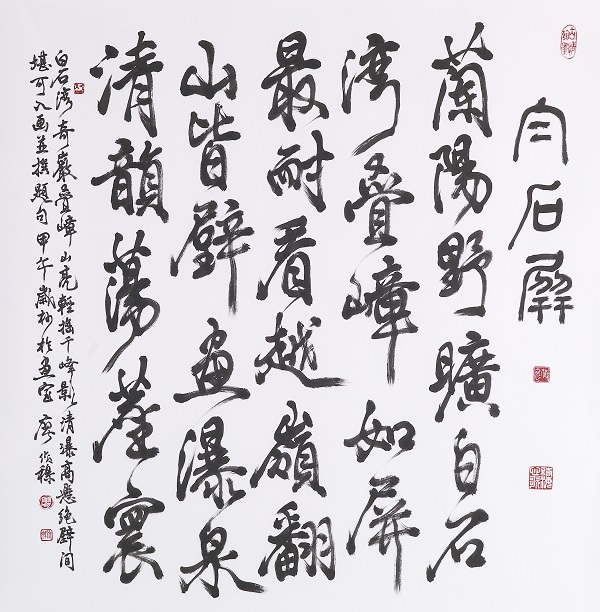 石屏
蘭陽野曠白石
湾疊嶂如屏
最耐看越嶺翻
山皆壁畫瀑泉
清韻蕩塵寰
白石湾奇巖疊嶂山亮輕搖千峰影清瀑高懸绝壁间
堪可入画並撰題句甲午歲杪於畫室廖俊穆